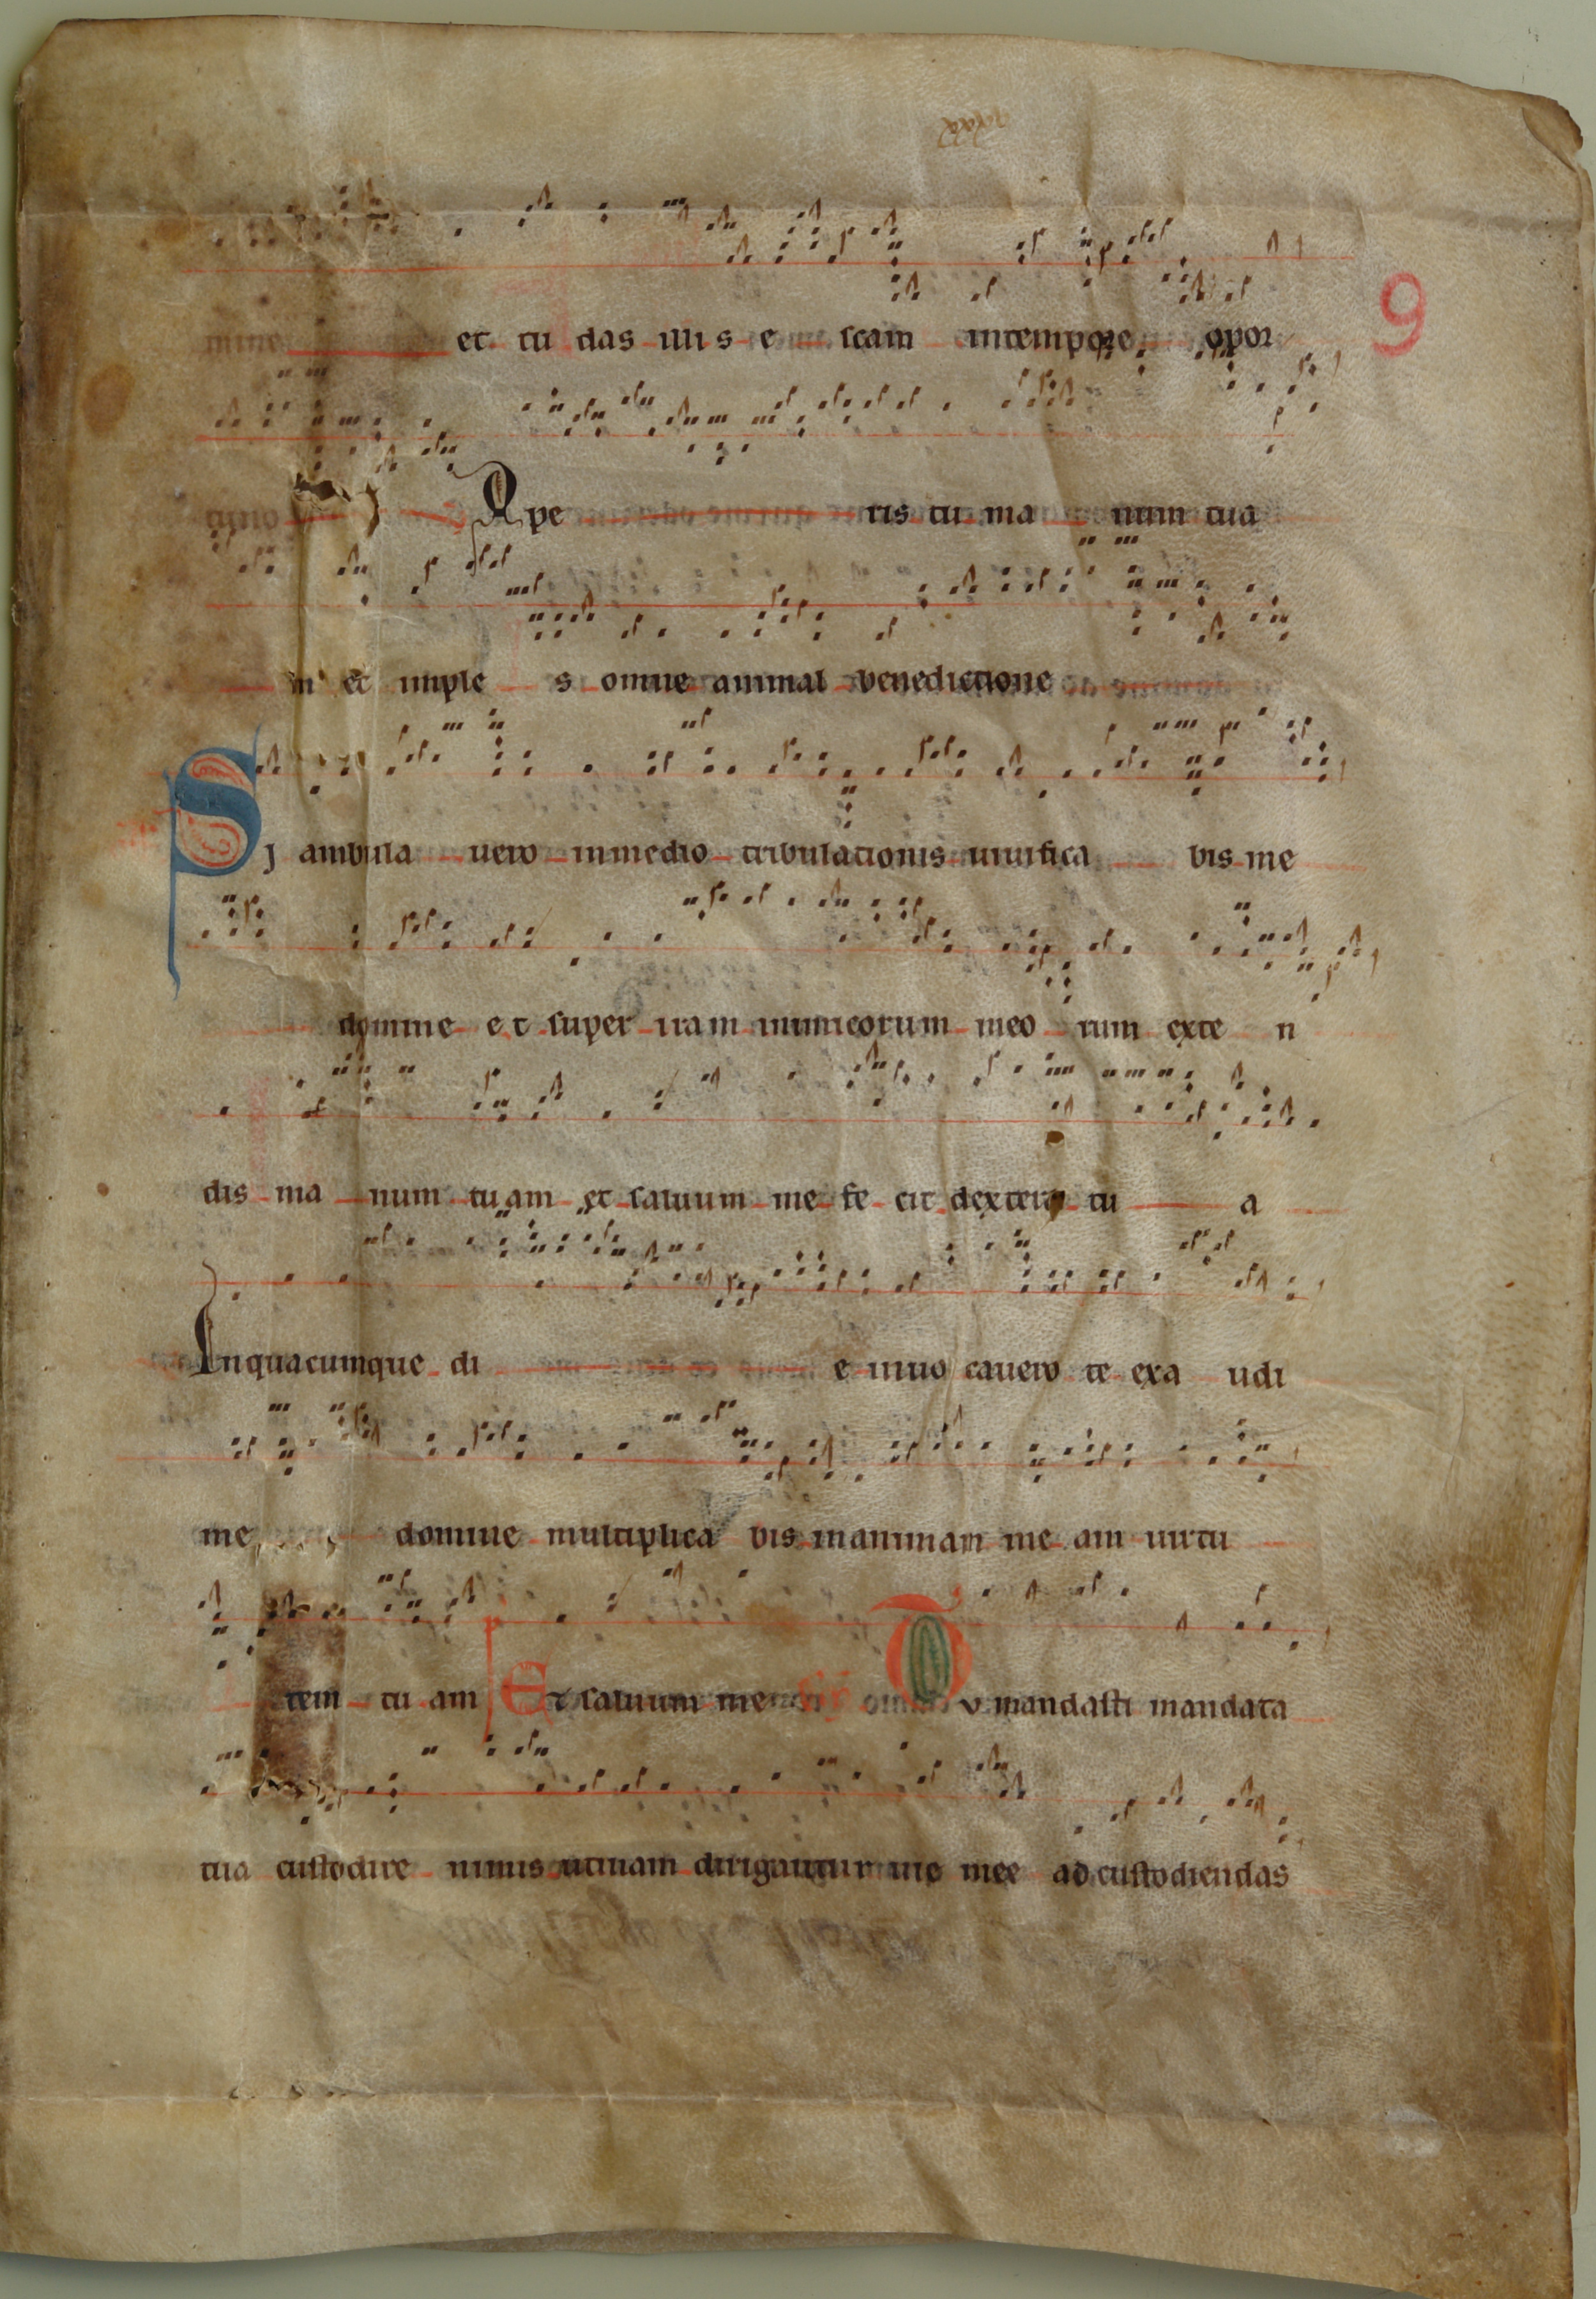 9
mine et tu das illi s e scam intempore opor
tuno Ape ris tu ma num tua
m et imple s omne animal benedictione
Sj ambula uero inmedio tribulationis uiuifica bis me
domine et super iram inimicorum meo rum exte n
dis ma num tuam et saluum me fe cit dextera tu a
Inquacumque di e inuo cauero te exa udi
me domine multiplica bis inanimam me am uirtu
tem tu am Et saluum me Tu mandasti mandata
tua custodire nimis utinam dirigantur uie mee ad custodiendas